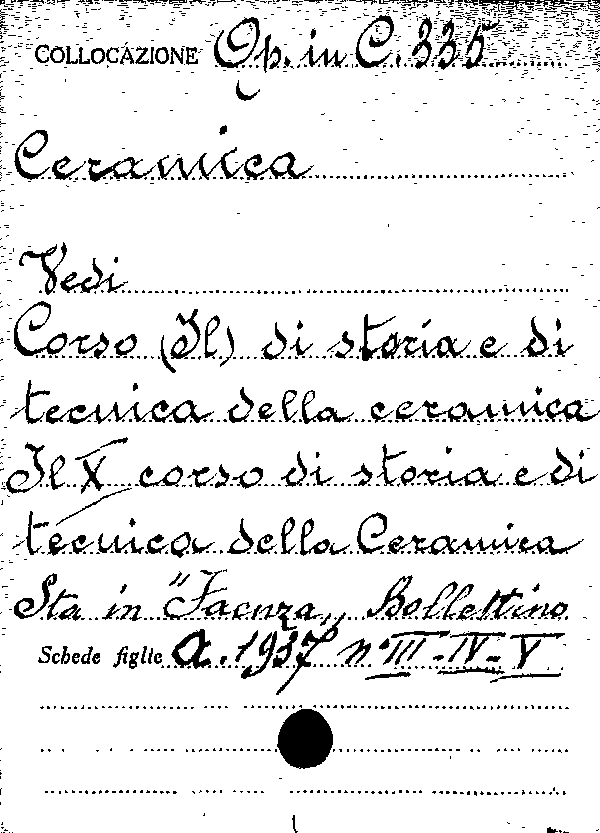 COLLOCAZIONE Op. in C. 335
Ceramica
Vedi
Corso (Il) di storia e di
tecnica della ceramica
Il X corso di storia e di
tecnica della Ceramica
Sta in "Faenza„ Bollettino
Schede figlie a. 1937 n° III - IV - V